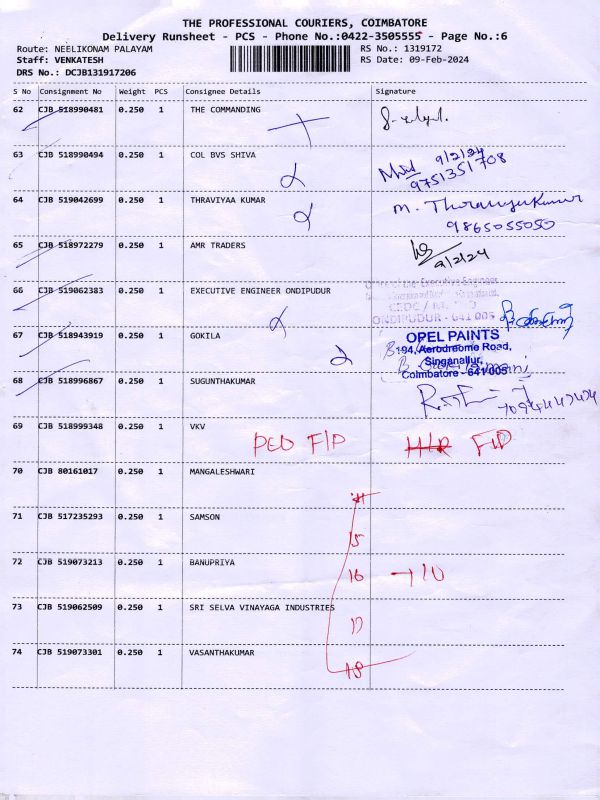 THE PROFESSIONAL COURIERS, COIMBATORE
Delivery Runsheet - PCS - Phone No.:0422-3505555 - Page No.:6
Route: NEELIKONAM PALAYAM RS No.: 1319172
Staff: VENKATESH RS Date: 09-Feb-2024
DRS No.: DCJB131917206
S No Consignment No Weight PCS Consignee Details Signature
62 CJB 518990481 0.250 1 THE COMMANDING
63 CJB 518990494 0.250 1 COL BVS SHIVA 9/2/24
9751351708
64 CJB 519042699 0.250 1 THRAVIYAA KUMAR M.
9865055050
65 CJB 518972279 0.250 1 AMR TRADERS
9/2/24
66 CJB 519062383 0.250 1 EXECUTIVE ENGINEER ONDIPUDUR
Executive Engineer
ONDIPUDUR - 641 005
67 CJB 518943919 0.250 1 GOKILA
OPEL PAINTS
194, Aerodroome Road,
Singanallur,
Coimbatore - 641 005
68 CJB 518996867 0.250 1 SUGUNTHAKUMAR
69 CJB 518999348 0.250 1 VKV
F/D F/D
70 CJB 80161017 0.250 1 MANGALESHWARI
71 CJB 517235293 0.250 1 SAMSON
15
72 CJB 519073213 0.250 1 BANUPRIYA
16 → 10
73 CJB 519062509 0.250 1 SRI SELVA VINAYAGA INDUSTRIES
17
74 CJB 519073301 0.250 1 VASANTHAKUMAR
18